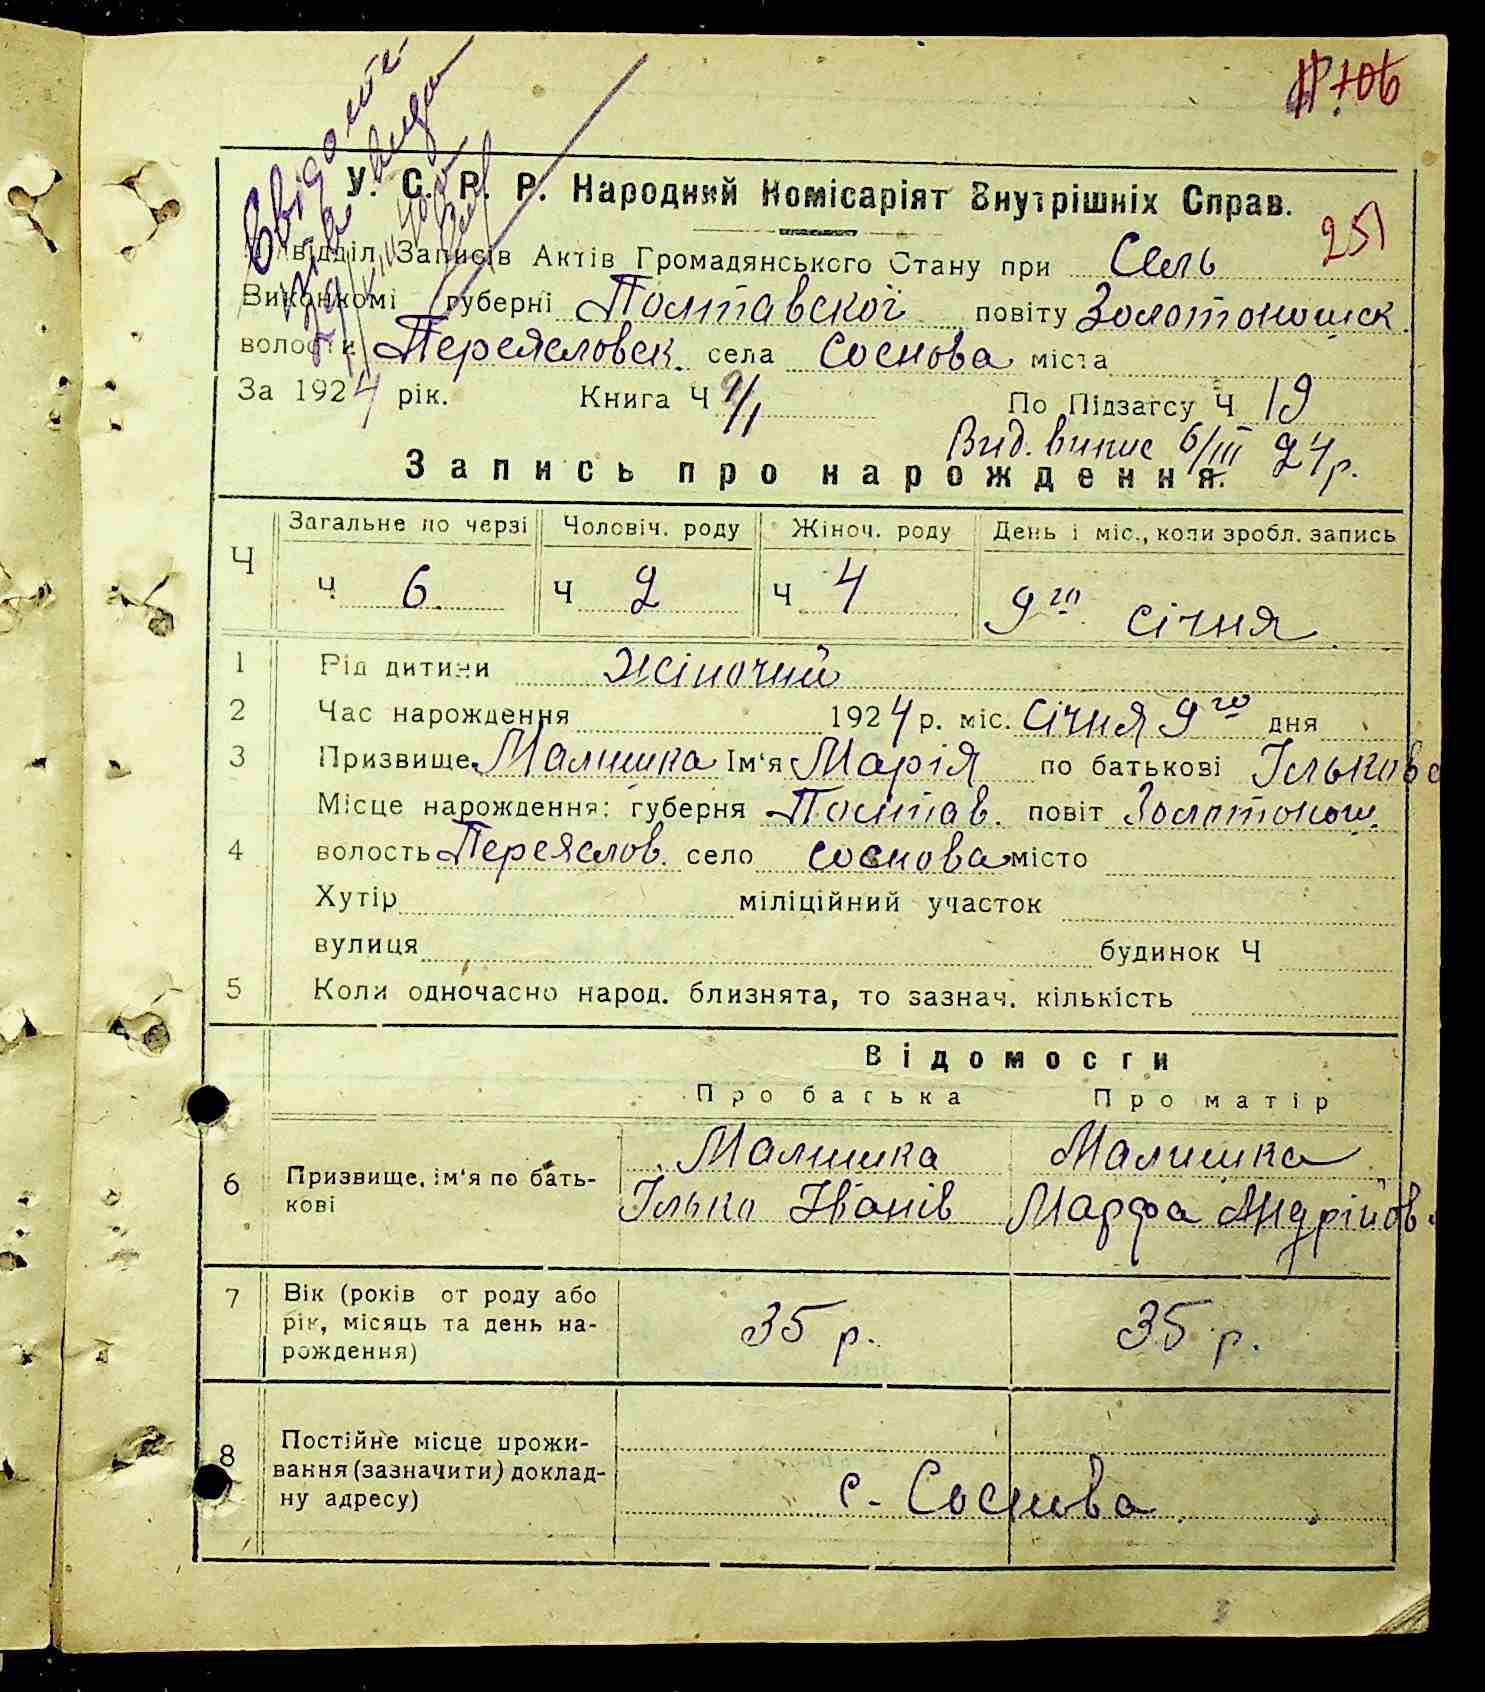 № 706
У. С. Р. Р. Народний Комісаріят Внутрішніх Справ.
251
відділ Записів Актів Громадянського Стану при Сель
Виконкомі губерні Полтавскої повіту Золотоношск.
волости Переясловск. села Соснова міста
За 1924 рік. Книга Ч 1/1 По Підзагсу Ч 19
Вид. випис 6/III 24 р.
Запись про нарождення.
Ч Загальне по черзі Чоловіч. роду Жіноч. роду День і міс., коли зробл. запись
Ч 6 Ч 2 Ч 4 9го січня
1 Рід дитини жіночий
2 Час нарождення 1924 р. міс. Січня 9го дня
3 Призвище Малишка Ім'я Марія по батькові Ількова
Місце нарождення: губерня Полтав. повіт Золотонош.
4 волость Переяслов. село соснова місто
Хутір міліційний участок
вулиця будинок Ч
5 Коли одночасно народ. близнята, то зазнач. кількість
Відомости
Про батька Про матір
Малишка Малишка
6 Призвище, ім'я по бать-
кові Ілько Іванів Марфа Андрійов.
7 Вік (років от роду або
рік, місяць та день на-
рождення) 35 р. 35 р.
8 Постійне місце прожи-
вання (зазначити) доклад-
ну адресу) с. Соснова